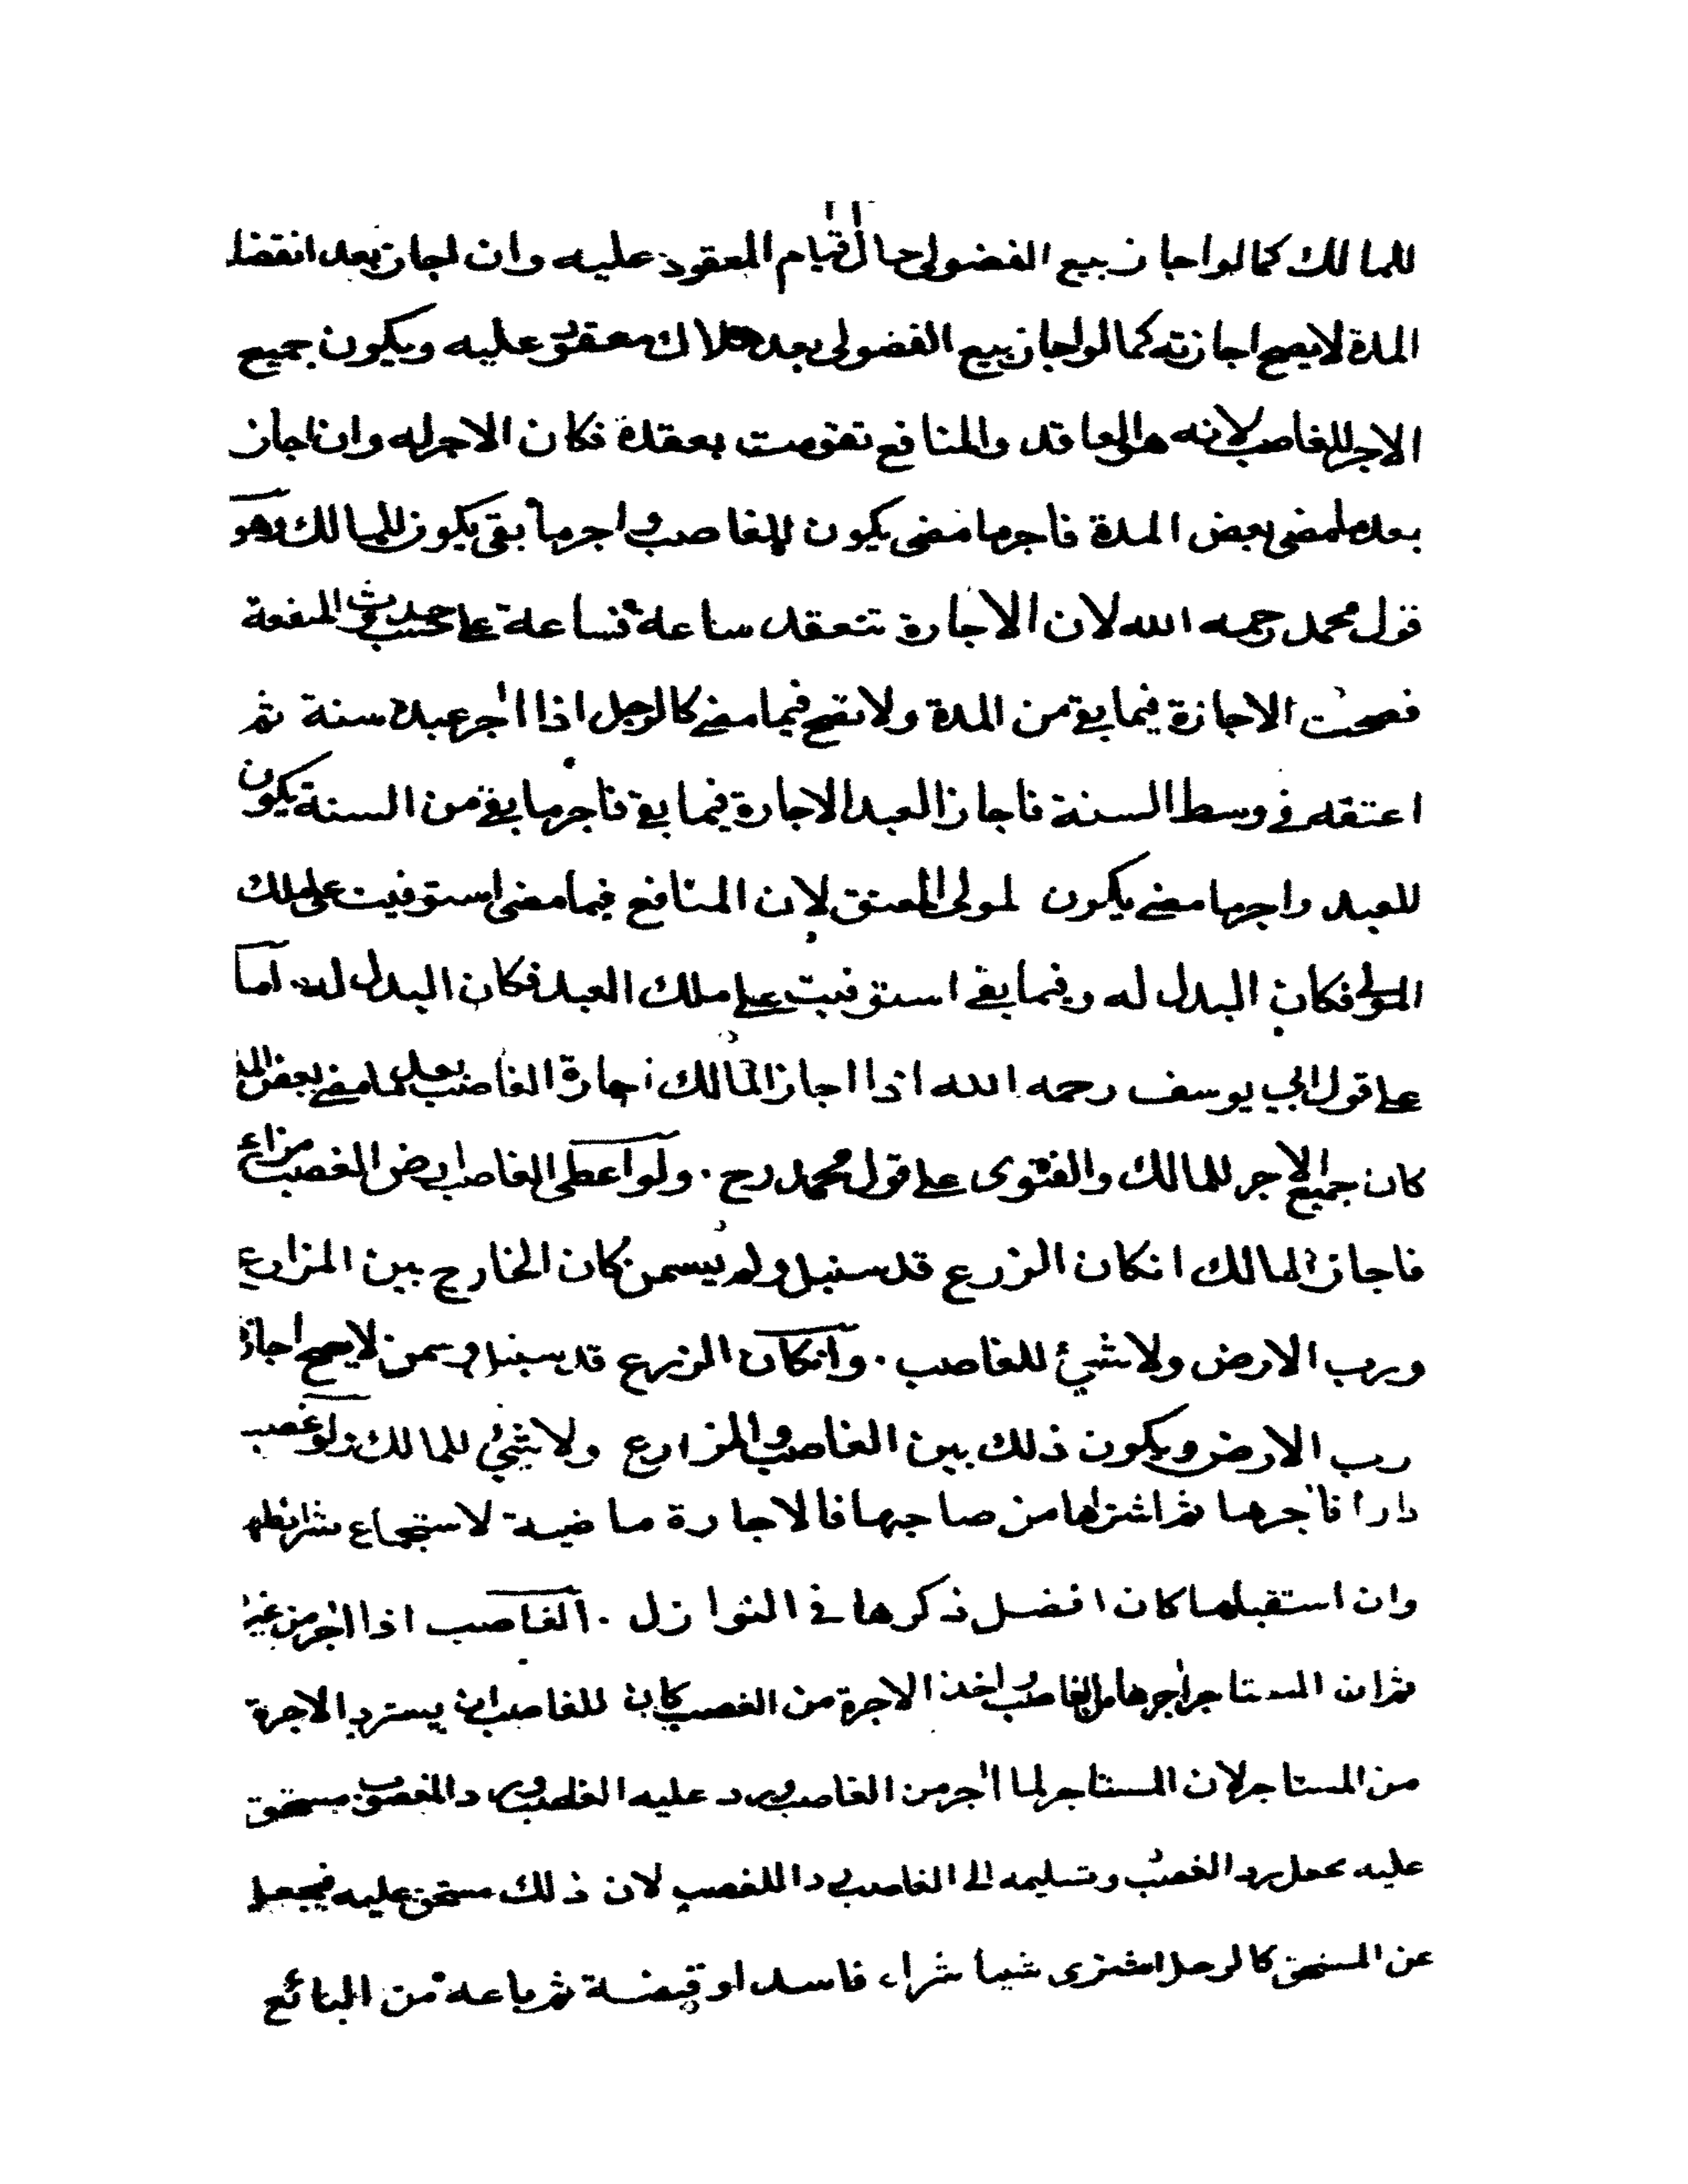 للمالك كما لو اجاز بيع الفضولى حال قيام المعقود عليه وان اجاز بعد انقضا
المدة لا يصح اجازته كما لو اجاز بيع الفضولى بعد هلاك معقود عليه ويكون جميع
الاجر للغاصب لانه هو العاقد والمنافع تقومت بعقده فكان الاجر له وان اجاز
بعد ما مضى بعض المدة فاجر ما مضى يكون للغاصب واجر ما بقى يكون للمالك وهو
قول محمد رحمه الله لان الاجارة تنعقد ساعة فساعة على حسب حدوث المنفعة
فصحت الاجازة فيما بقى من المدة ولا تصح فيما مضى كالرجل اذا اجر عبده سنة ثم
اعتقه فى وسط السنة فاجاز العبد الاجارة فيما بقى فاجر ما بقى من السنة يكون
للعبد واجر ما مضى يكون لمولى المعتق لان المنافع فيما مضى استوفيت على ملك
المولى فكان البدل له وفيما بقى استوفيت على ملك العبد فكان البدل له. اما
على قول ابي يوسف رحمه الله اذا اجاز المالك اجارة الغاصب بعد ما مضى بعض المد
كان جميع الاجر للمالك والفتوى على قول محمد رح . ولو اعطى الغاصب ارض الغصب مزارع
فاجاز المالك انكان الزرع قد سنبل ولم يسمن كان الخارج بين المزارع
ورب الارض ولا شئ للغاصب . وانكان الزرع قد سنبل وسمن لا يصح اجاز
رب الارض ويكون ذلك بين الغاصب والمزارع ولا شئ للمالك ولو غصب
دارا فاجرها ثم اشتراها من صاحبها فالاجارة ماضية لاستجماع شرائطها
وان استقبلها كان افضل ذكرها فى النوازل . الغاصب اذا اجر من غيره
ثم ان المستاجر اجرها من الغاصب واخذ الاجرة من الغصب كان للغاصب ان يسترد الاجرة
من المستاجر لان المستاجر لما اجر من الغاصب ويرد عليه الغاصب ورد المغصوب مستحق
عليه رد الغصب وتسليمه الى الغاصب لان ذلك مستحق عليه فيجعل
عن المستحق كالرجل اشترى شيا شراء فاسدا وقبضه ثم باعه من البائع